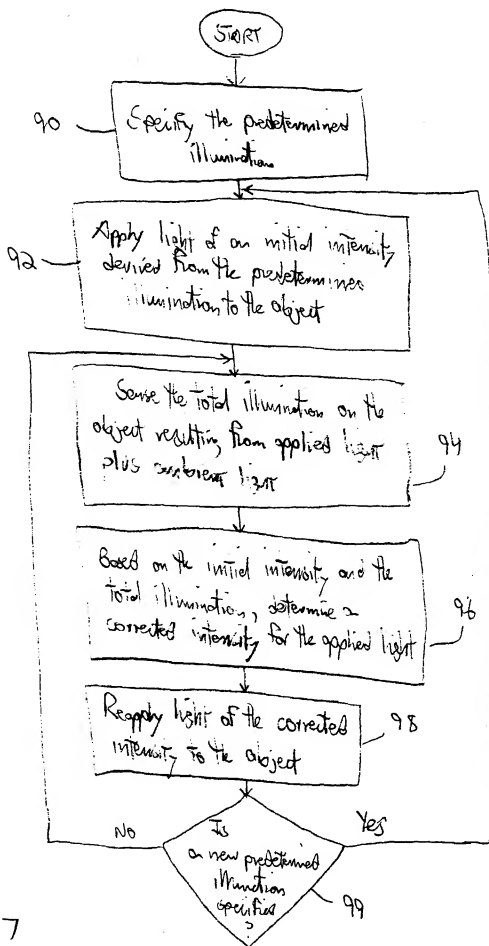 START
90
Specify the predetermined
illumination
92
Apply light of an initial intensity
derived from the predetermines
illumination to the object
Sense the total illumination on the
object resulting from applied light
plus ambient light
94
Based on the initial intensity and the
total illumination, determine a
corrected intensity for the applied light
96
Reapply light of the corrected
intensity to the object
98
No
Yes
Is
a new predetermined
illumination
specified
?
99
7